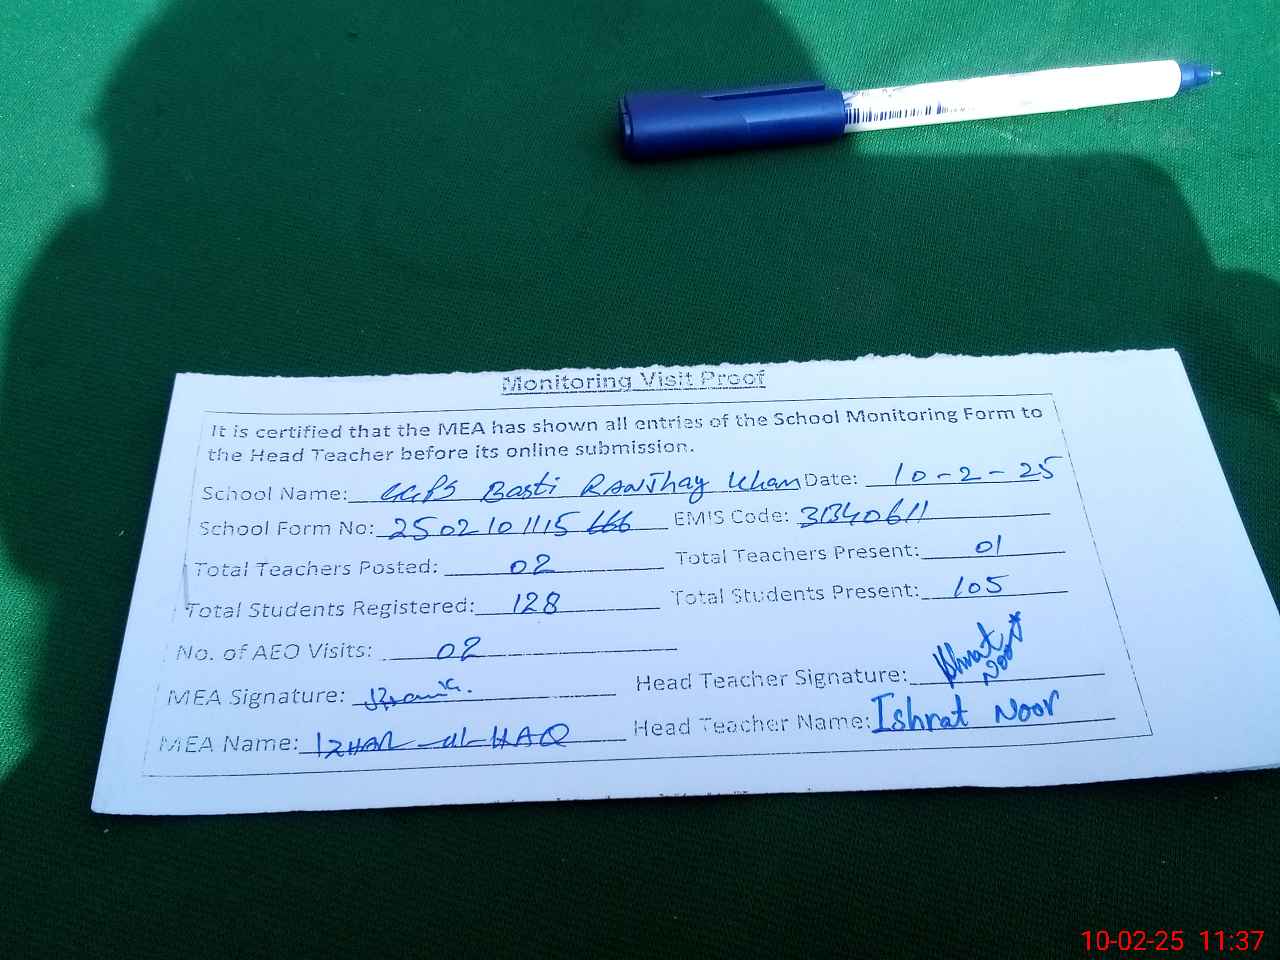 Monitoring Visit Proof
It is certified that the MEA has shown all entries of the School Monitoring Form to
the Head Teacher before its online submission.
School Name: GGPS Basti RANJhay Khan Date: 10-2-25
School Form No: 2502101115666 EMIS Code: 31340611
Total Teachers Posted: 02 Total Teachers Present: 01
Total Students Registered: 128 Total Students Present: 105
No. of AEO Visits: 02
MEA Signature: Head Teacher Signature: Ishrat Noor
MEA Name: IZHAR-ul-HAQ Head Teacher Name: Ishrat Noor
10-02-25 11:37